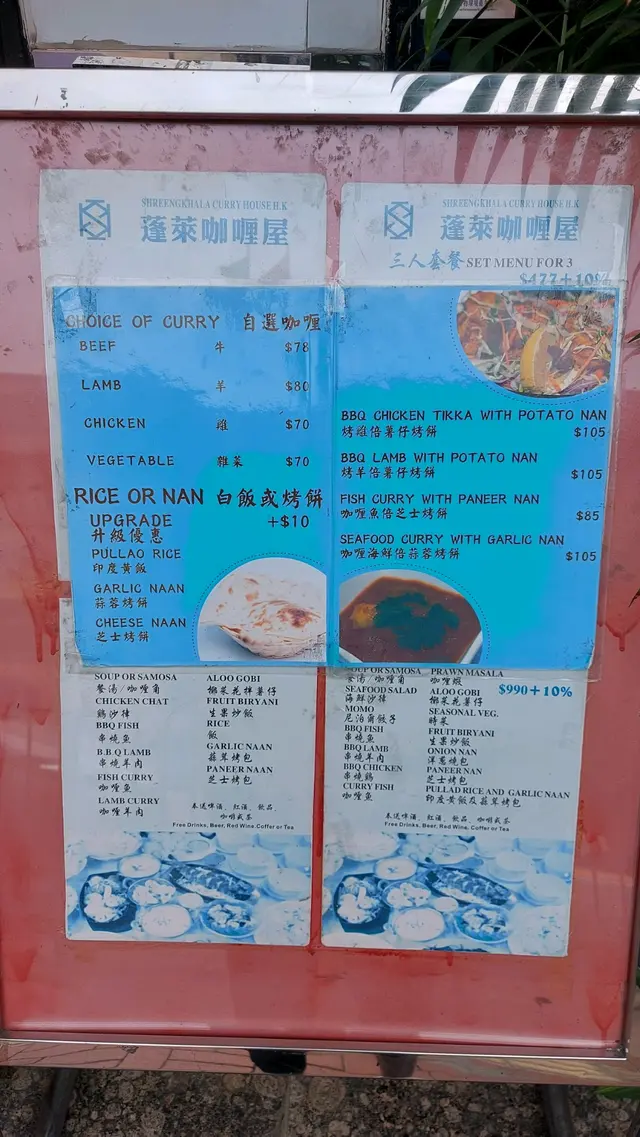 SHREENGKHALA CURRY HOUSE H.K
蓬萊咖喱屋
CHOICE OF CURRY 自選咖喱
BEEF 牛 $78
LAMB 羊 $80
CHICKEN 雞 $70
VEGETABLE 雜菜 $70
RICE OR NAN 白飯或烤餅
UPGRADE +$10
升級優惠
PULLAO RICE
印度黃飯
GARLIC NAAN
蒜蓉烤餅
CHEESE NAAN
芝士烤餅
SOUP OR SAMOSA
餐湯/咖喱角
CHICKEN CHAT
鷄沙律
BBQ FISH
串燒魚
B.B.Q LAMB
串燒羊肉
FISH CURRY
咖喱魚
LAMB CURRY
咖喱羊肉
ALOO GOBI
椰菜花拌薯仔
FRUIT BIRYANI
生果炒飯
RICE
飯
GARLIC NAAN
蒜茸烤包
PANEER NAAN
芝士烤包
未送啤酒, 紅酒, 飲品,
咖啡或茶
Free Drinks, Beer, Red Wine, Coffer or Tea
SHREENGKHALA CURRY HOUSE H.K
蓬萊咖喱屋
三人套餐 SET MENU FOR 3
$477+10%
BBQ CHICKEN TIKKA WITH POTATO NAN
烤雞倍薯仔烤餅 $105
BBQ LAMB WITH POTATO NAN
烤羊倍薯仔烤餅 $105
FISH CURRY WITH PANEER NAN
咖喱魚倍芝士烤餅 $85
SEAFOOD CURRY WITH GARLIC NAN
咖喱海鮮倍蒜蓉烤餅 $105
SOUP OR SAMOSA
餐湯/咖喱角
SEAFOOD SALAD
海鮮沙律
MOMO
尼泊爾餃子
BBQ FISH
串燒魚
BBQ LAMB
串燒羊肉
BBQ CHICKEN
串燒鷄
CURRY FISH
咖喱魚
PRAWN MASALA
咖喱蝦
ALOO GOBI $990+10%
椰菜花拌薯仔
SEASONAL VEG.
時菜
FRUIT BIRYANI
生果炒飯
ONION NAN
洋葱烤包
PANEER NAN
芝士烤包
PULLAD RICE AND GARLIC NAAN
印度黃飯及蒜茸烤包
未送啤酒, 紅酒, 飲品, 咖啡或茶
Free Drinks, Beer, Red Wine, Coffer or Tea